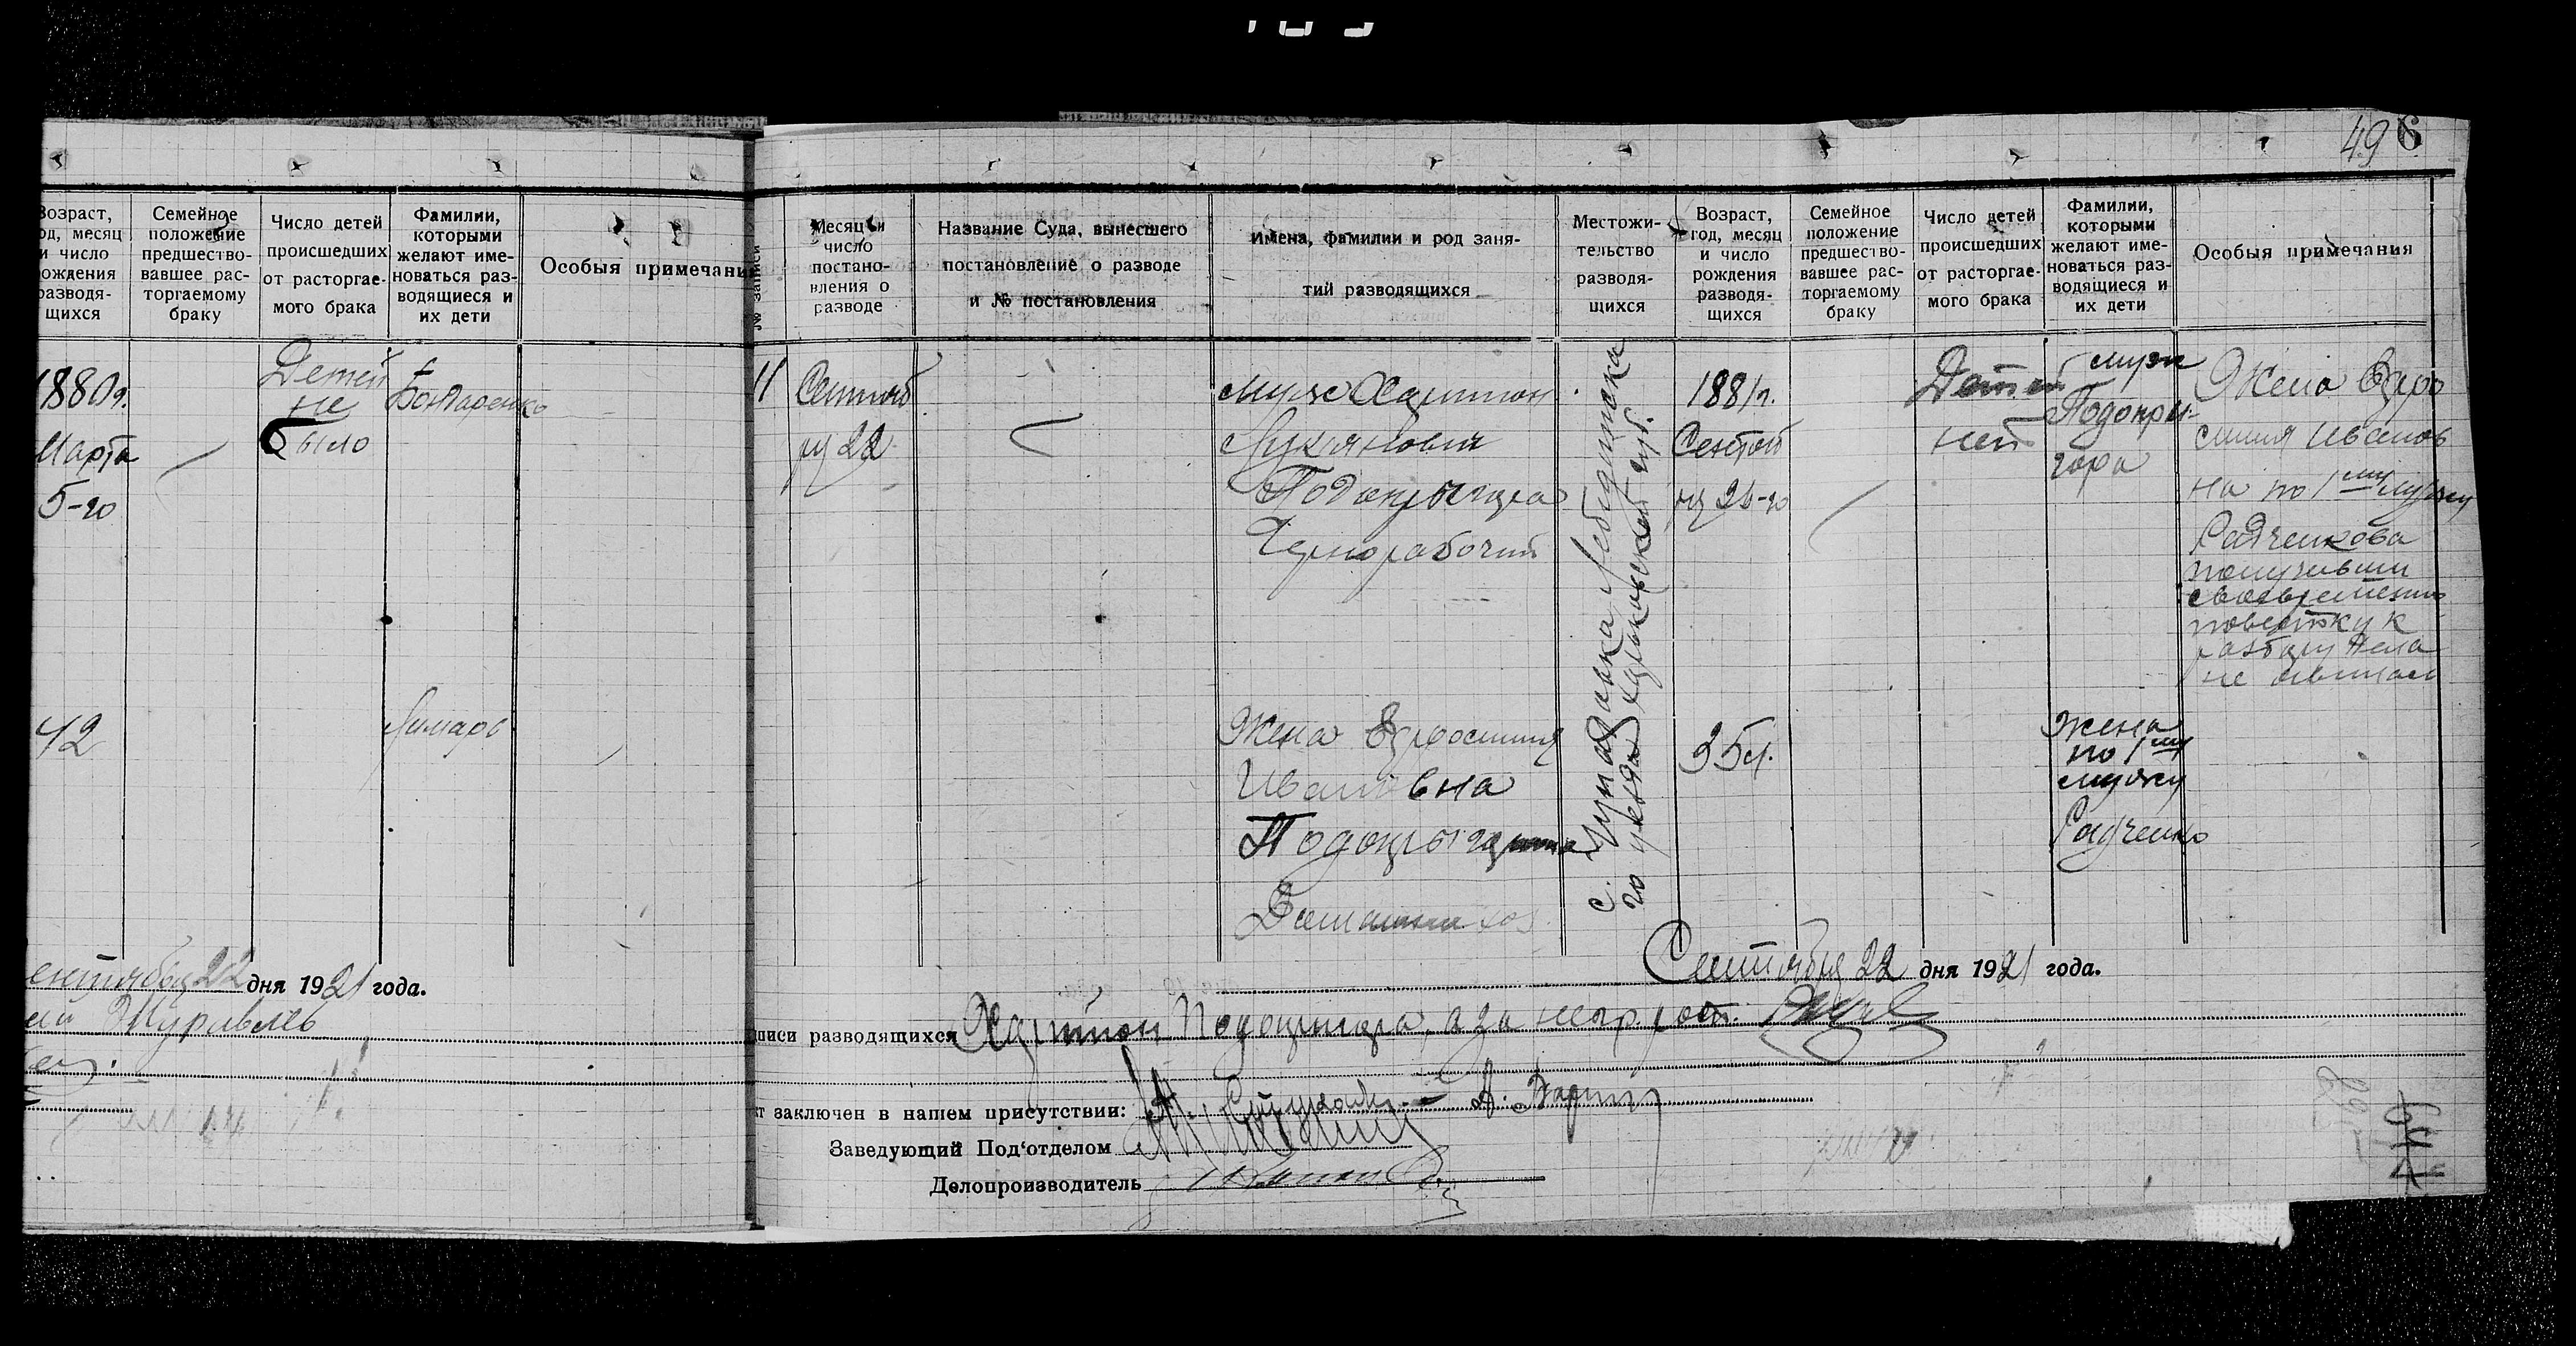 49 6
Возраст,
од, месяц
и число
рождения
разводя-
щихся
Семейное
положение
предшество-
вавшее рас-
торгаемому
браку
Число детей
происшедших
от расторгае-
мого брака
Фамилии,
которыми
желают име-
новаться раз-
водящиеся и
их дети
Особыя примечани
1880 г.
Марта
5-го
Детей
не
было
Бондаренко
42
Лимарь
ентября 22 дня 1921 года.
Журавлев
№ записи
Месяц и
число
постано-
вления о
разводе
Название Суда, вынесшего
постановление о разводе
и № постановления
Имена, фамилии и род заня-
тий разводящихся
Местожи-
тельство
разводя-
щихся
Возраст,
год, месяц
и число
рождения
разводя-
щихся
Семейное
положение
предшество-
вавшее рас-
торгаемому
браку
Число детей
происшедших
от расторгае-
мого брака
Фамилии,
которыми
желают име-
новаться раз-
водящиеся и
их дети
Особыя примечания
11
Сентяб
ря 22
муж Харитон
Лукянович
Подопрыгора
Чернорабочий
Жена Ефросиния
Ивановна
Домашнехоз
с.
го уезда Харьковской губ.
1881 г.
35 л.
Детей
нет
муж
Подопры-
гора
Жена
по 1му
мужу
Радченко
Жена Ефро
синия Иванов
на по 1му мужу
Радченкова
получивши
своевременно
повестку к
разбору дела
не явилась
Сентября 22 дня 1921 года.
писи разводящихся Харитон Подопрыгора, а за негр. рост.
кт заключен в нашем присутствии:
Заведующий Под'отделом
Делопроизводитель